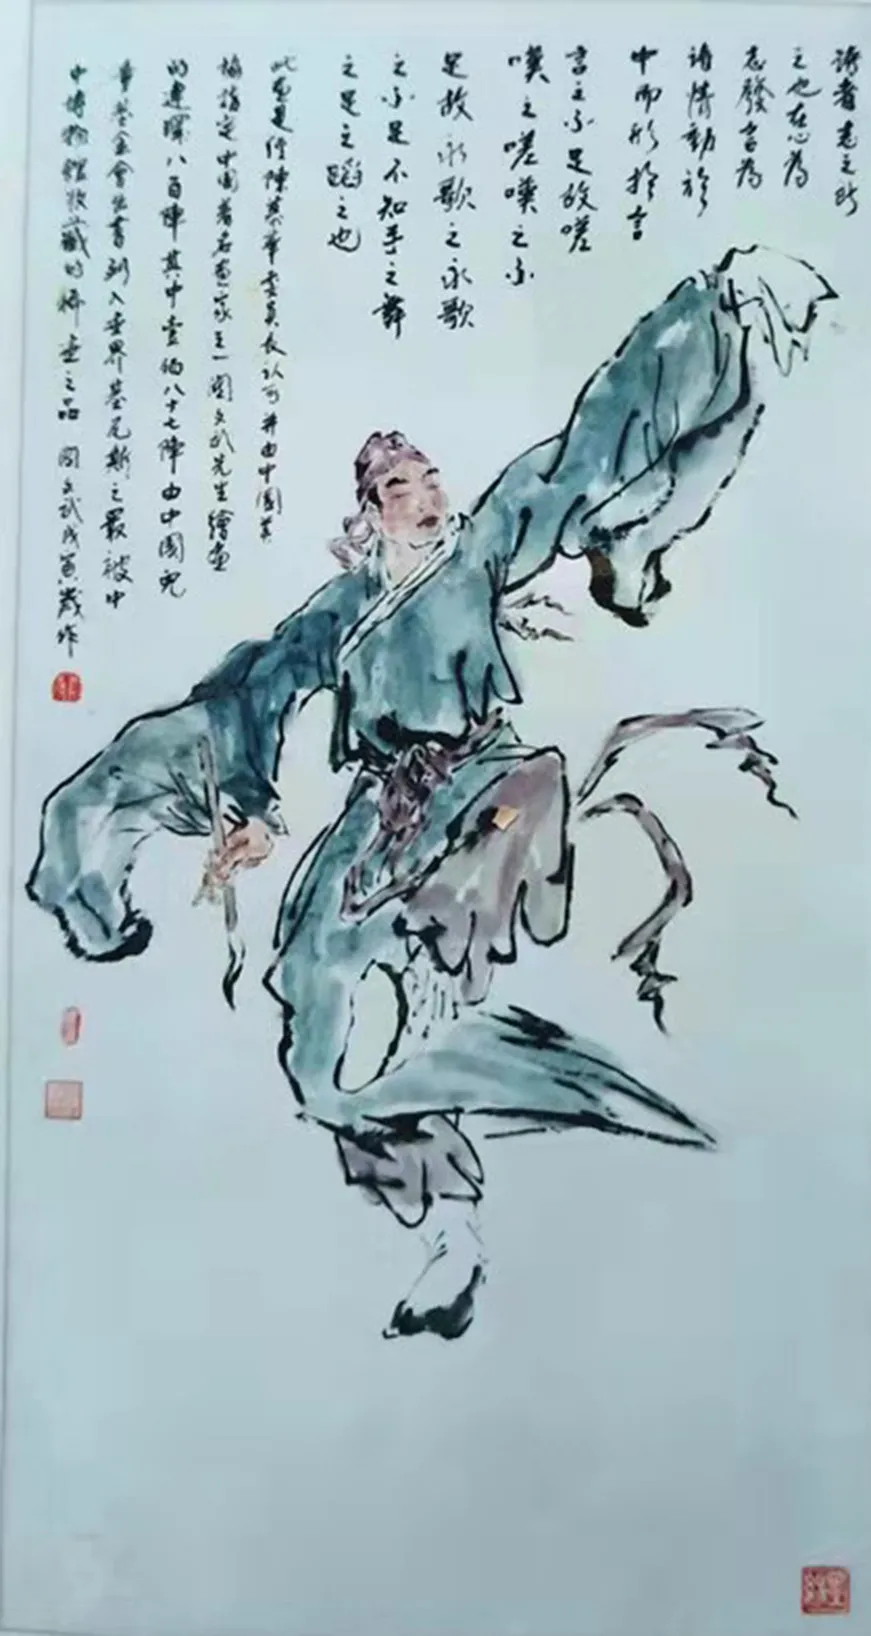 詩者志之所
之也在心為
志發言為
詩情動於
中而形於言
言之不足故嗟
嘆之嗟嘆之不
足故永歌之永歌
之不足不知手之舞
之足之蹈之也
此畫是經陳慕華委員長认可并由中國美
協指定中國著名畫家之一文武先生繪畫
的連環八百陣其中壹佰八十七陣由中國兒
童基金會出書列入世界基尼斯之最被中
中博物館收藏的畫之品 文武戊寅歲作